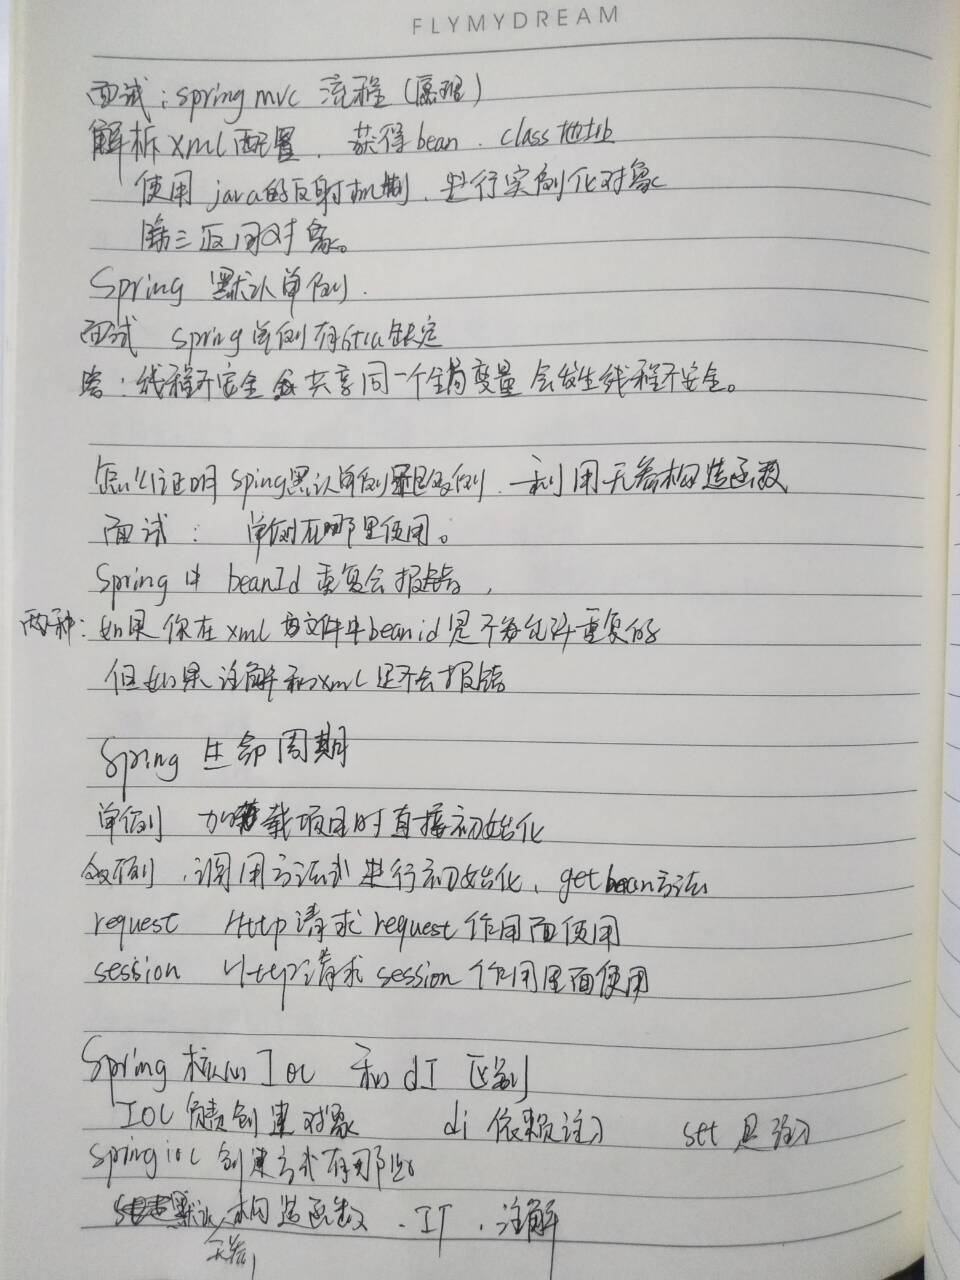 FLYMYDREAM
面试：spring mvc 流程（原理）
解析xml配置．获得bean．class地址
使用java的反射机制．进行实例化对象
第三返回对象。
Spring 默认单例．
面试 spring单例有什么缺定
答：线程不安全 共享同一个全局变量 会发生线程不安全。
怎么证明Sping默认单例还是多例．利用无参构造函数
面试： 单例在哪里使用。
Spring中 beanId 重复会报错，
两种：如果你在xml 文件中beanid是不允许重复的
但如果注解和xml是不会报错
Spring 生命周期
单例 加载项目时直接初始化
多例．调用方法式进行初始化、getbean方法
request Http请求request作用面使用
session Http请求session作用里面使用
Spring 核心Ioc 和dI 区别
IOC负责创建对象 di 依赖注入 set 是注入
spring ioc 创建方式有那些
默认构造函数．工厂．注解
无参